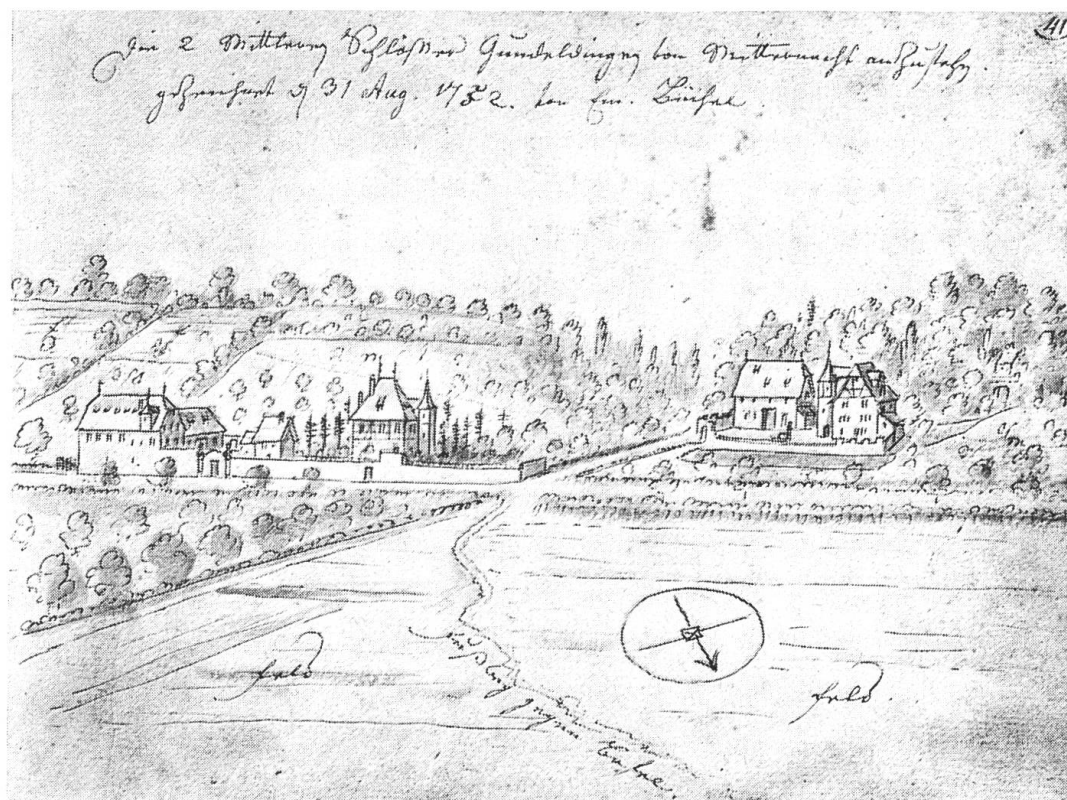 41
Die 2 Mittlern Schlösser Gundeldingen von Mitternacht anzusehn.
gezeichnet d 31 Aug. 1752. von Em. Büchel.
Feld
Fußweg gegen Basel.
Feld.